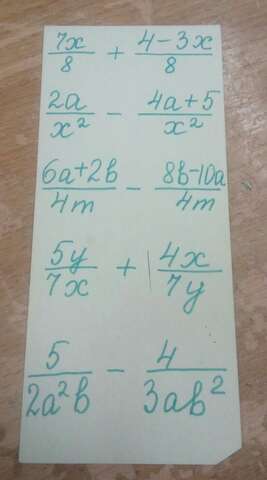 7x/8 + 4-3x/8
2a/x² - 4a+5/x²
6a+2b/4m - 8b-10a/4m
5y/7x + 4x/7y
5/2a²b - 4/3ab²